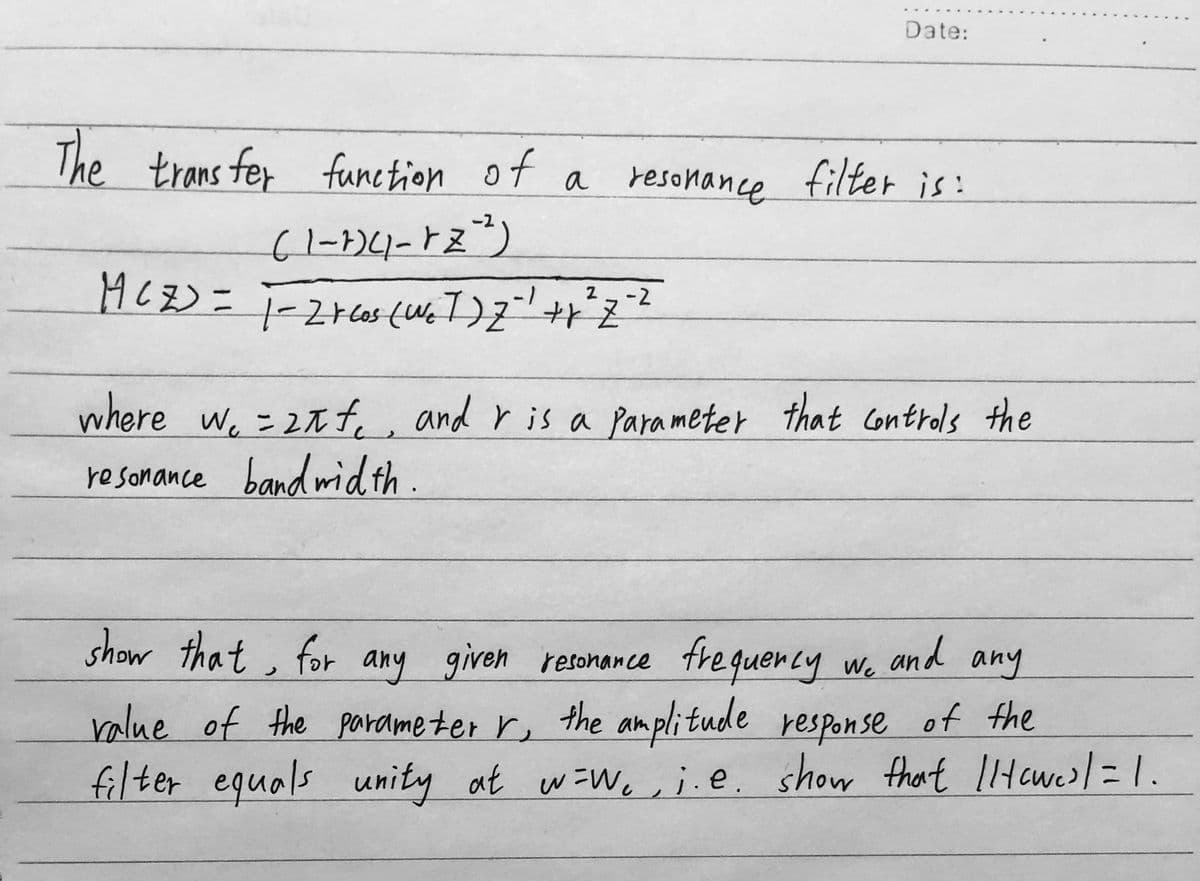 Date:
The transfer function of a resonance filter is:
(1-r)(1-rz⁻²)
H(z) = 1-2rcos(ω꜀T)z⁻¹+r²z⁻²
where w꜀ = 2πf꜀, and r is a parameter that controls the
resonance bandwidth.
show that, for any given resonance frequency w꜀ and any
value of the parameter r, the amplitude response of the
filter equals unity at w=w꜀, i.e. show that |H(w꜀)| = 1.